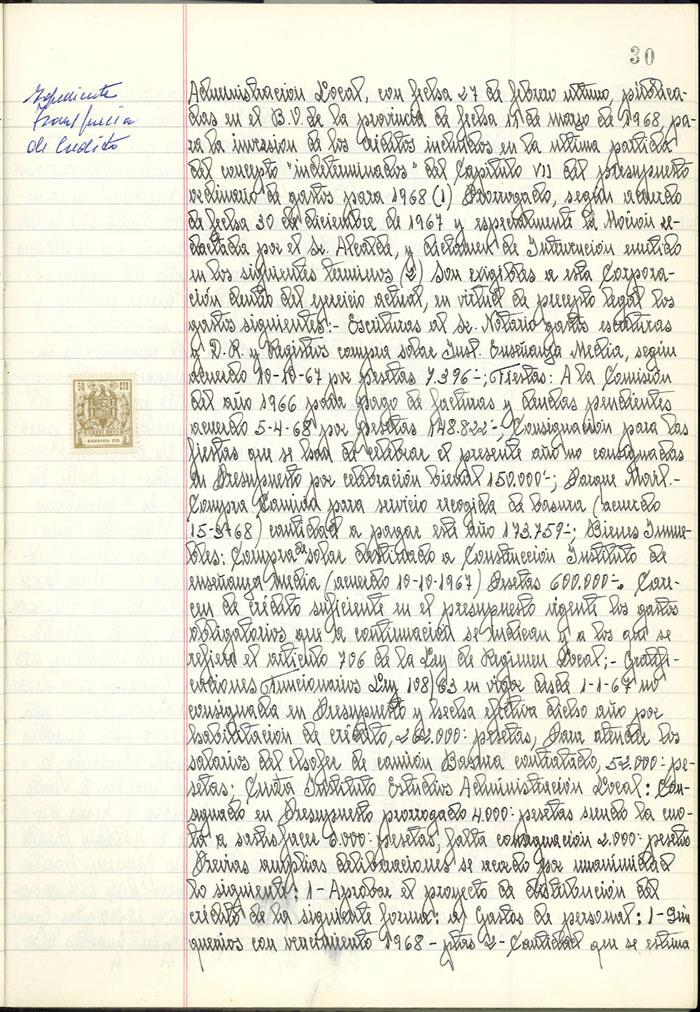 30
Expediente
transferencia
de Crédito
Administración Local, con fecha 27 de febrero último, publica-
das en el B.O. de la provincia de fecha 11 de marzo de 1968, pa
ra la inversión de los créditos incluidos en la última partida
del concepto "indeterminados" del Capítulo VII del presupuesto
ordinario de gastos para 1968 (1) Prorrogado, según acuerdo
de fecha 30 de diciembre de 1967 y especialmente la Moción re-
dactada por el Sr. Alcalde, y dictamen de Intervención emitido
en los siguientes términos (2) Son exigibles a esta Corpora-
ción dentro del ejercicio actual, en virtud de precepto legal los
gastos siguientes:- Escrituras al Sr. Notario gastos escrituras
y D.R. y Registros compra solar Inst. Enseñanza Media, según
acuerdo 10-10-67 por pesetas 7.396-; Fiestas: A la Comisión
del año 1966 para pago de facturas y deudas pendientes
acuerdo 5-4-68 por pesetas 148.822-; Consignación para las
fiestas que se han de celebrar el presente año no consignadas
en Presupuesto por celebración bienal 150.000-; Parque Móvil.-
Compra Camión para servicio recogida de basura (acuerdo
15-3-68) cantidad a pagar este año 173.759-; Bienes Inmue-
bles: Compra de solar destinado a Construcción Instituto de
enseñanza Media (acuerdo 10-10-1967) Pesetas 600.000-. Care-
cen de crédito suficiente en el presupuesto vigente los gastos
obligatorios que a continuación se indican y a los que se
refiere el artículo 706 de la Ley de Régimen Local;- Gratifi-
caciones Funcionarios Ley 108/63 en vigor desde 1-1-67 no
consignada en Presupuesto y hecha efectiva dicho año por
habilitación de crédito, 262.000- pesetas, Para atender los
salarios del chofer de camión Basura contratado, 52.000- pe-
setas; Cuota Instituto Estudios Administración Local: Con-
signado en Presupuesto prorrogado 4.000- pesetas siendo la cuo-
ta a satisfacer 6.000- pesetas, falta consignación 2.000- pesetas
Previas amplias deliberaciones se acordó por unanimidad
lo siguiente: 1-Aprobar el proyecto de distribución del
crédito de la siguiente forma: a) Gastos de personal: 1-Quin
quenios con vencimiento 1968 - ptas 2- Cantidad que se estima
50 CTS